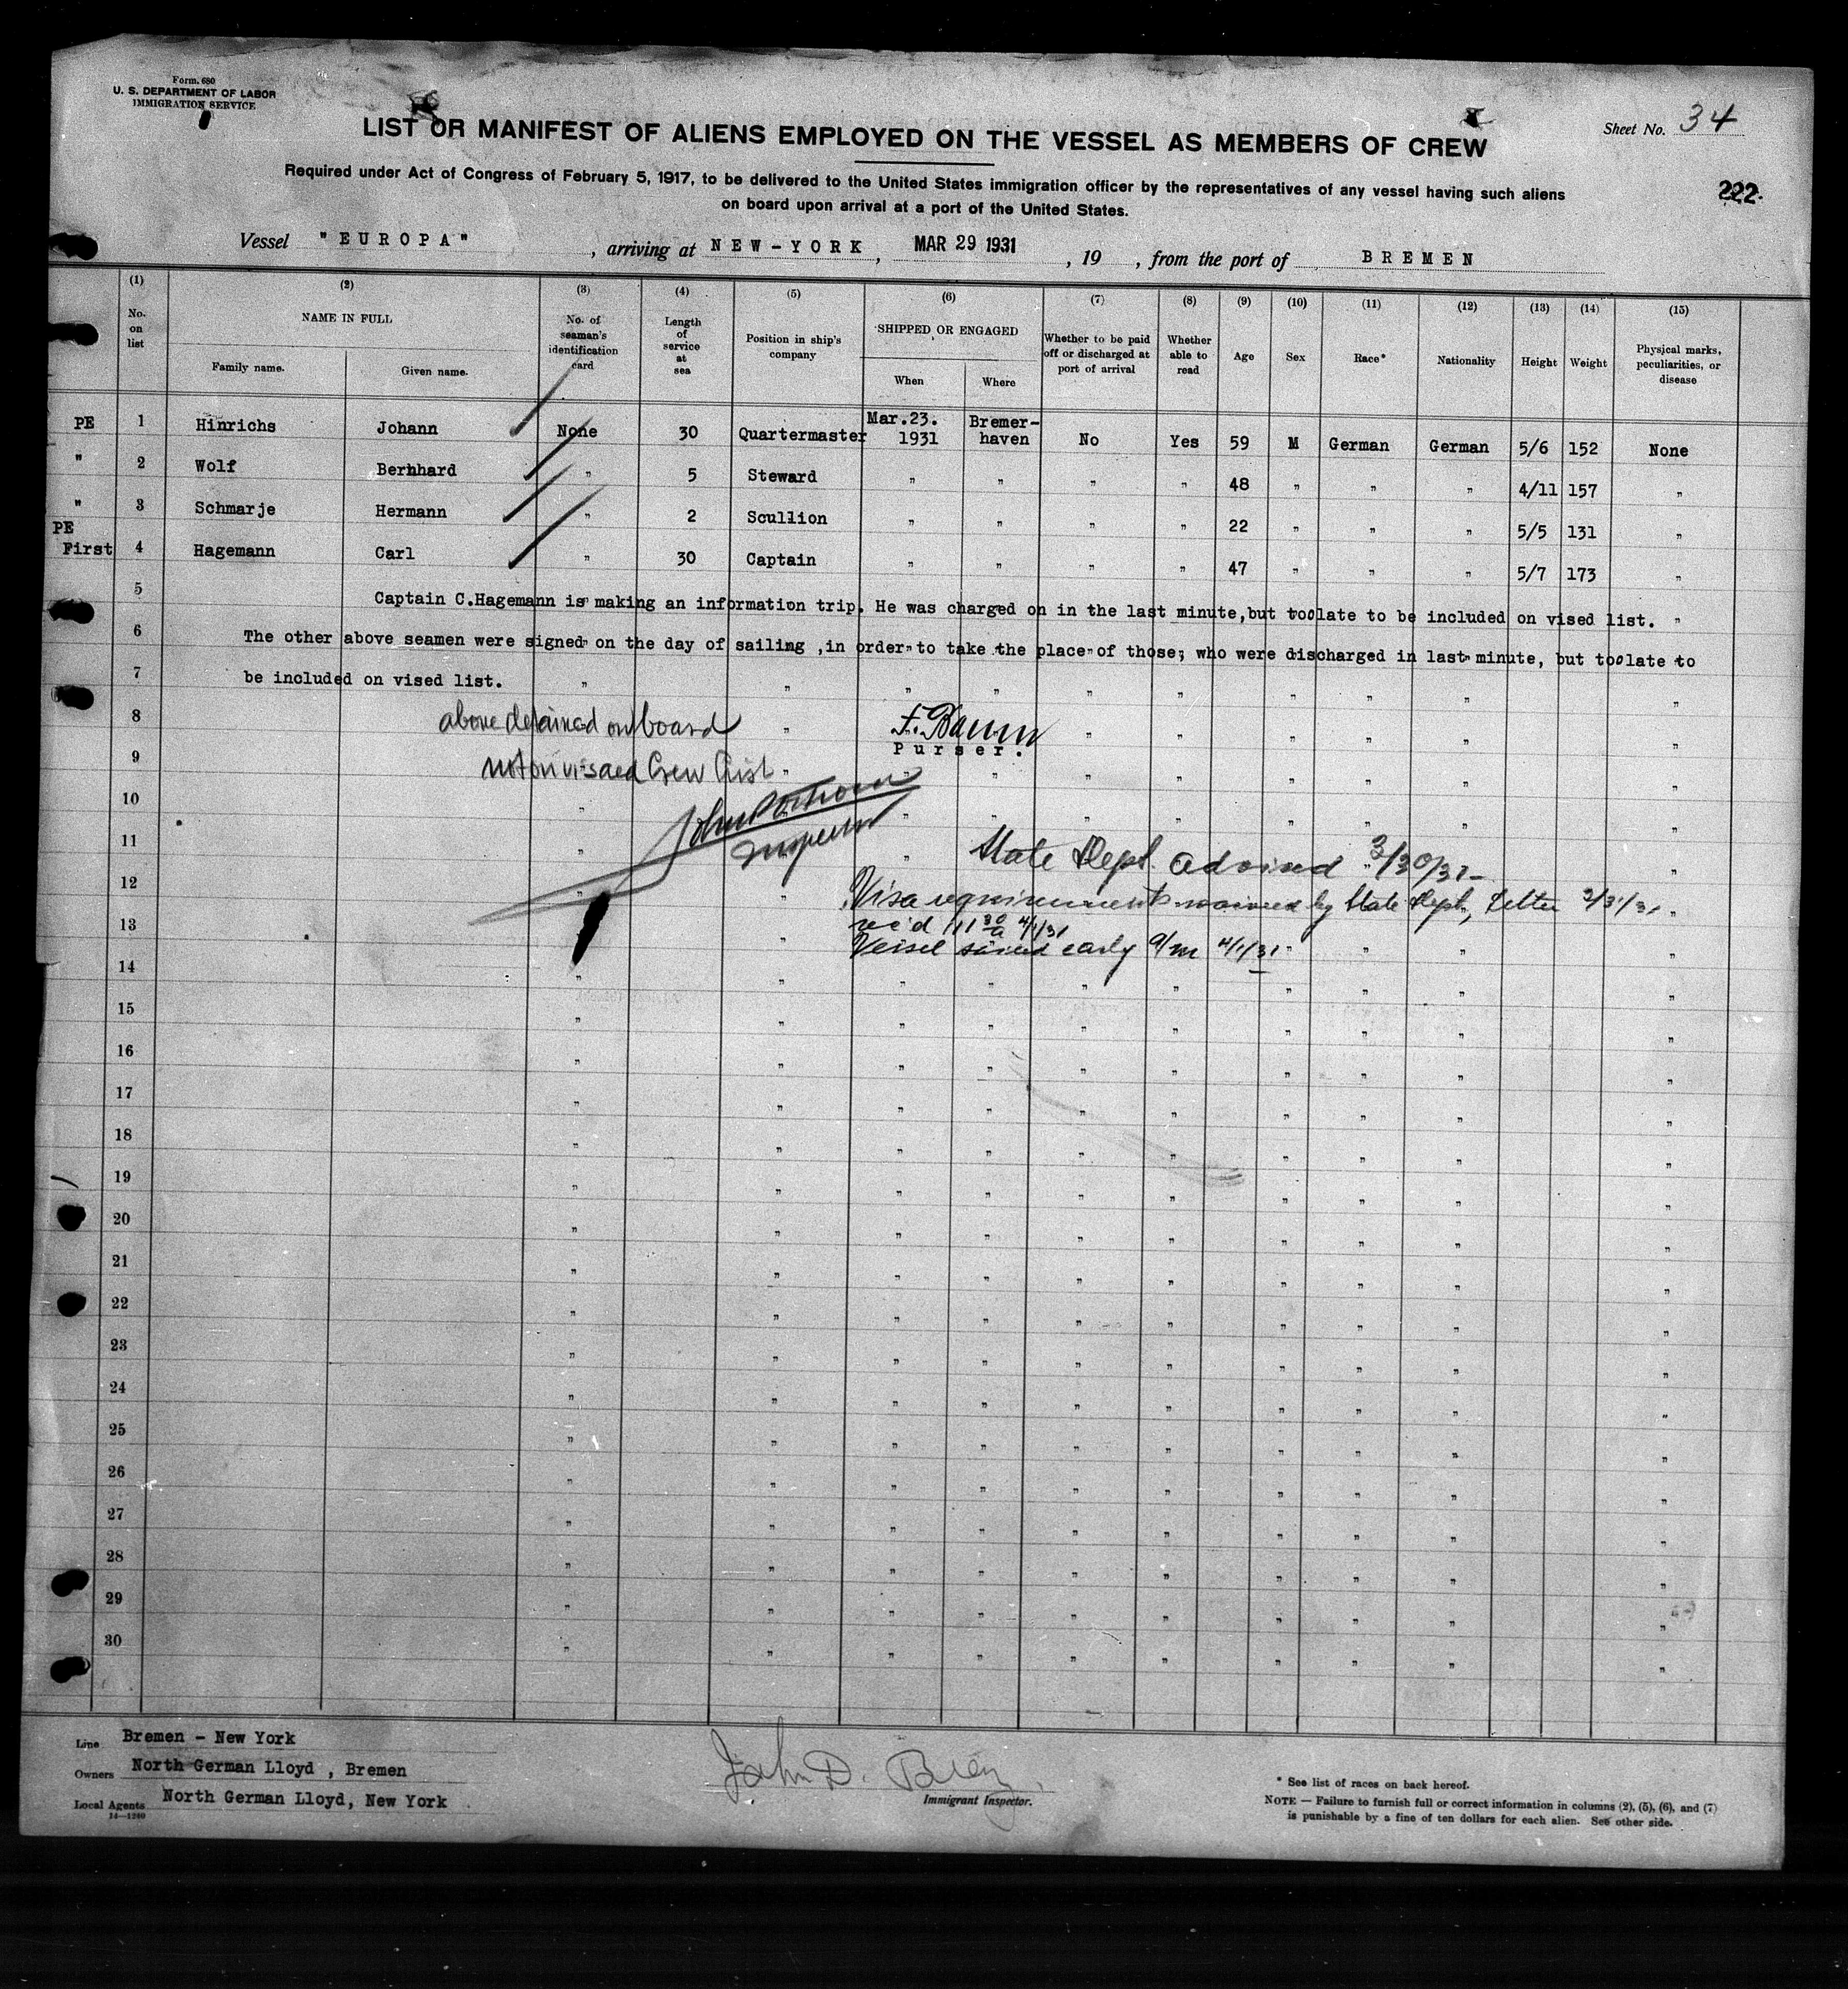 Form. 680
U. S. DEPARTMENT OF LABOR
IMMIGRATION SERVICE
LIST OR MANIFEST OF ALIENS EMPLOYED ON THE VESSEL AS MEMBERS OF CREW
Sheet No. 34
Required under Act of Congress of February 5, 1917, to be delivered to the United States immigration officer by the representatives of any vessel having such aliens
on board upon arrival at a port of the United States.
222.
Vessel "EUROPA", arriving at NEW-YORK, MAR 29 1931, 19 , from the port of BREMEN
(1) (2) (3) (4) (5) (6) (7) (8) (9) (10) (11) (12) (13) (14) (15)
No. on list NAME IN FULL Family name. Given name. No. of seaman's identification card Length of service at sea Position in ship's company SHIPPED OR ENGAGED When Where Whether to be paid off or discharged at port of arrival Whether able to read Age Sex Race* Nationality Height Weight Physical marks, peculiarities, or disease
PE 1 Hinrichs Johann None 30 Quartermaster Mar.23. 1931 Bremer-haven No Yes 59 M German German 5/6 152 None
" 2 Wolf Bernhard " 5 Steward " " " " 48 " " " 4/11 157 "
" 3 Schmarje Hermann " 2 Scullion " " " " 22 " " " 5/5 131 "
PE First 4 Hagemann Carl " 30 Captain " " " " 47 " " " 5/7 173 "
5 Captain C.Hagemann is making an information trip. He was charged on in the last minute,but toolate to be included on vised list. "
6 The other above seamen were signed on the day of sailing ,in order to take the place of those, who were discharged in last minute, but toolate to
7 be included on vised list. " " " " " " " " " "
8 above detained on board " F. Baum " " " " " "
Purser.
9 not on visaed Crew List " " " " " " " " "
10 " " " " " " " " "
Inspector
11 " " State Dept. advised 3/30/31- "
12 " " Visa requirements waived by State Dept, Letter 3/31/31 "
rec'd 11 30 a 4/1/31
13 " Vessel sailed early a/m 4/1/31 " " " "
14 " " " " " " " " " "
15 " " " " " " " " " "
16 " " " " " " " " " "
17 " " " " " " " " " "
18 " " " " " " " " " "
19 " " " " " " " " " "
20 " " " " " " " " " "
21 " " " " " " " " " "
22 " " " " " " " " " "
23 " " " " " " " " " "
24 " " " " " " " " " "
25 " " " " " " " " " "
26 " " " " " " " " " "
27 " " " " " " " " " "
28 " " " " " " " " " "
29 " " " " " " " " " "
30 " " " " " " " " " "
Line Bremen - New York
Owners North German Lloyd , Bremen
Local Agents North German Lloyd, New York
14—1240
John D.
Immigrant Inspector.
* See list of races on back hereof.
NOTE — Failure to furnish full or correct information in columns (2), (5), (6), and (7)
is punishable by a fine of ten dollars for each alien. See other side.